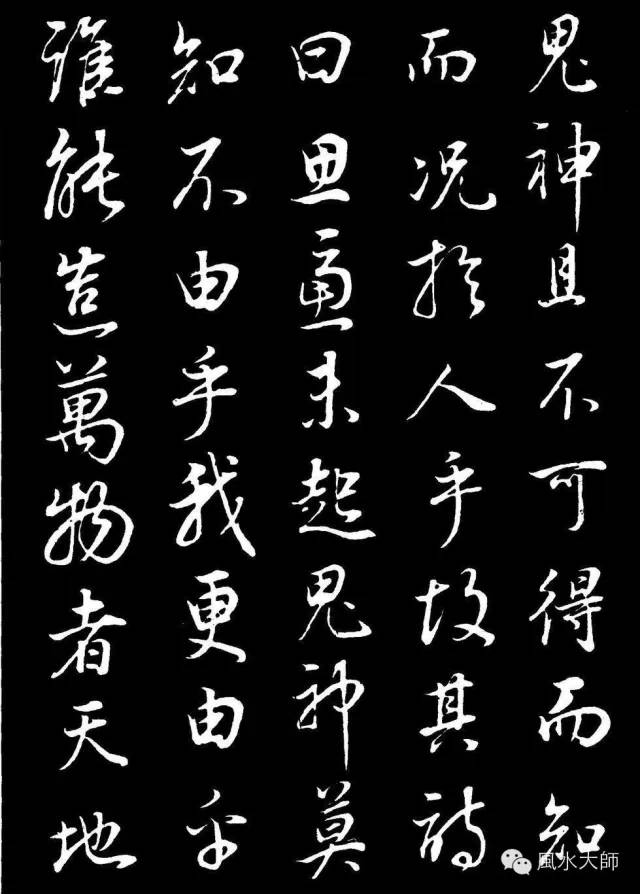 鬼神且不可得而知
而况於人乎故其詩
曰思慮未起鬼神莫
知不由乎我更由乎
誰能造萬物者天地
風水大師